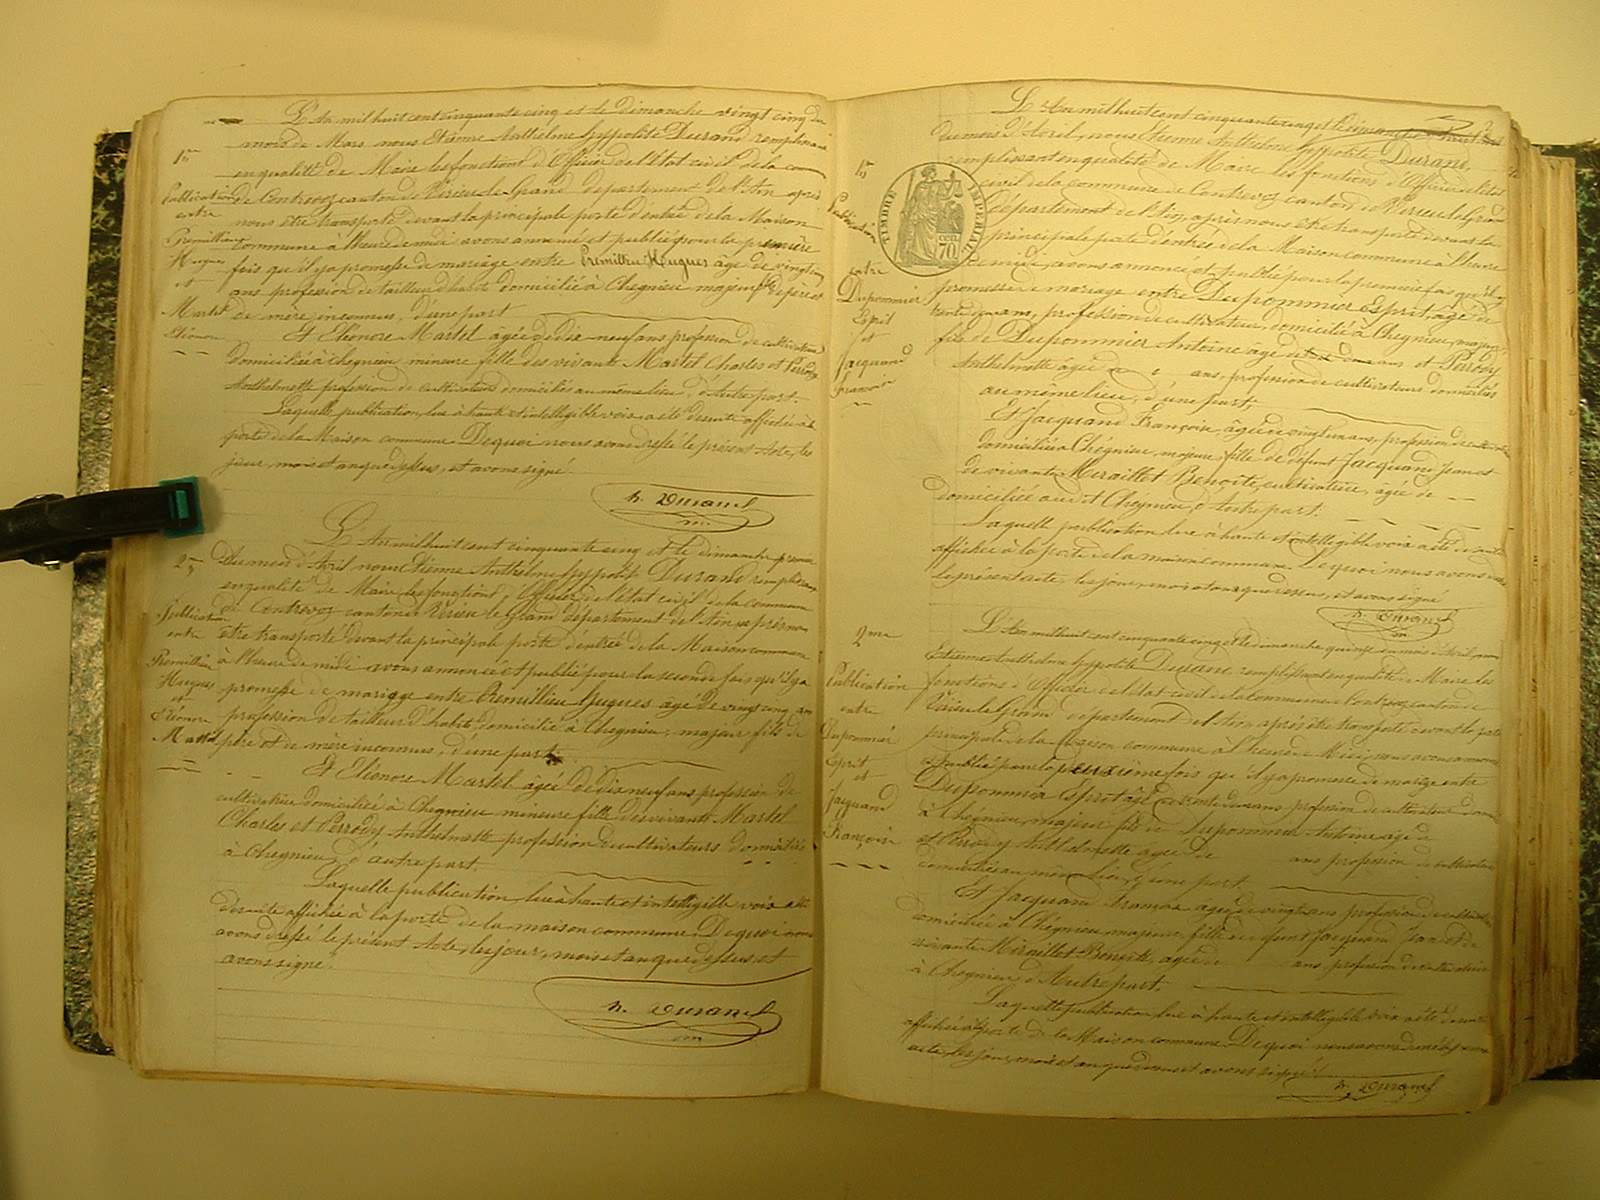 L'An mil huit cent cinquante cinq et le Dimanche vingt cinq du
mois de Mars nous Etienne Anthelme hyppolite Durand remplissant
en qualité de Maire les fonctions d'Officier de l'état civil de la com
1re
Publication
entre
Premillieu
Hugues
et
Martel
Eléonore
de Contrevoz canton de Virieu le Grand département de l'Ain après
nous être transporté devant la principale porte d'entrée de la Maison
commune à l'heure de midi avons annoncé et publié pour la première
fois qu'il y a promesse de mariage entre Premillieu Hugues âgé de vingt cinq
ans profession de tailleur d'habits domicilié à Chegnieu majeur fils de père et
de mère inconnus, d'une part
Et Eléonore Martel âgée de dix neuf ans profession de cultivatrice
domiciliée à Chegnieu mineure fille des vivants Martel Charles et Perrody
Anthelmette profession de cultivateurs domiciliés au même lieu, d'Autre part.
Laquelle publication, lue à haute et intelligible voix a été de suite affichée à la
porte de la Maison commune. De quoi nous avons dressé le présent Acte, les
jour, mois et an que dessus, et avons signé
h. Durand
L'An mil huit cent cinquante cinq et le dimanche premier
2e
Publication
entre
Premillieu
Hugues
et
Eléonore
Martel
du mois d'Avril nous Etienne Anthelme hyppolite Durand remplissant
en qualité de Maire les fonctions d'Officier de l'état civil de la commune
de Contrevoz canton de Virieu le Grand département de l'Ain après nous
être transporté devant la principale porte d'entrée de la Maison commune
à l'heure de midi avons annoncé et publié pour la seconde fois qu'il y a
promesse de mariage entre Premillieu Hugues âgé de vingt cinq ans
profession de tailleur d'habits domicilié à Chegnieu, majeur fils de
père et de mère inconnus, d'une part.
Et Eléonore Martel âgée de dix neuf ans profession de
cultivatrice domiciliée à Chegnieu mineure fille des vivants Martel
Charles et Perrody Anthelmette profession de cultivateurs domiciliés
à Chegnieu, d'autre part.
Laquelle publication, lue à haute et intelligible voix a été
de suite affichée à la porte de la maison commune. De quoi nous
avons dressé le présent Acte, les jour, mois et an que dessus, et
avons signé
h. Durand
L'An mil huit cent cinquante cinq et le dimanche
du mois d'Avril, nous Etienne Anthelme hyppolite Durand,
remplissant en qualité de Maire les fonctions d'Officier de l'état
TIMBRE IMPERIAL
70 cen.
1re
Publication
entre
Dupommier
Esprit
et
Jacquand
Françoise
civil de la commune de Contrevoz canton de Virieu le Grand
département de l'Ain, après nous être transporté devant la
principale porte d'entrée de la Maison commune à l'heure
de midi, avons annoncé et publié pour la première fois qu'il y a
promesse de mariage entre Dupommier Esprit, âgé de
trente deux ans, profession de cultivateur, domicilié à Chegnieu, majeur,
fils de Dupommier Antoine âgé de ans et Perrody
Anthelmette âgée de ans, profession de cultivateurs domiciliés
au même lieu, d'une part,
Et Jacquand Françoise, âgée de vingt ans, profession de
domiciliée à Chégnieu, majeure, fille de défunt Jacquand Jean et
de vivante Miraillet Benoîte, cultivatrice, âgée de
domiciliée audit Chegnieu, d'Autre part.
Laquelle publication lue à haute et intelligible voix a été de suite
affichée à la porte de la maison commune. De quoi nous avons
le présent acte, les jour, mois et an que dessus, et avons signé
h. Durand
L'An mil huit cent cinquante cinq et le dimanche quinze du mois d'Avril, nous
2me
Publication
entre
Dupommier
Esprit
et
Jacquand
Françoise
Etienne Anthelme hyppolite Durand remplissant en qualité de Maire les
fonctions d'Officier de l'état civil de la commune de Contrevoz canton de
Virieu le Grand département de l'Ain, après être transporté devant la porte
principale de la Maison commune à l'heure de Midi, nous avons annoncé
et publié pour la deuxième fois qu'il y a promesse de mariage entre
Dupommier Esprit âgé de trente deux ans profession de cultivateur domicilié
à Chégnieu, majeur fils de Dupommier Antoine âgé de
et Perrody Anthelmette âgée de ans profession de cultivateurs
domiciliés au même lieu, d'une part.
Et Jacquand Françoise âgée de vingt ans profession de cultivatrice
domiciliée à Chégnieu, majeure, fille de défunt Jacquand Jean et de
vivante Miraillet Benoîte, âgée de ans, profession de cultivatrice
à Chegnieu, d'Autre part.
Laquelle publication, lue à haute et intelligible voix a été de suite
affichée à la porte de la Maison commune. De quoi nous avons dressé le présent
acte, les jour, mois et an que dessus et avons signé.
h. Durand